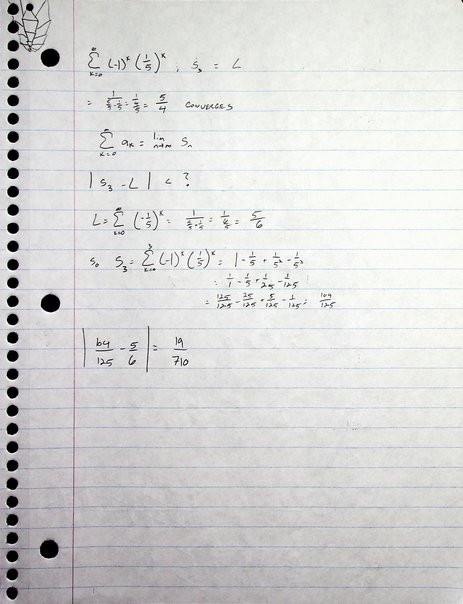 ∑_{k=0}^{∞} (-1)^k (1/5)^k ; S_3 = L
= 1/(5/5 - 1/5) = 1/(4/5) = 5/4 CONVERGES
∑_{k=0}^{∞} a_k = lim_{n→∞} S_n
| S_3 - L | < ?
L = ∑_{k=0}^{∞} (-1/5)^k = 1/(5/5 + 1/5) = 1/(6/5) = 5/6
So S_3 = ∑_{k=0}^{3} (-1)^k (1/5)^k = 1 - 1/5 + 1/5^2 - 1/5^3
= 1/1 - 1/5 + 1/25 - 1/125
= 125/125 - 25/125 + 5/125 - 1/125 = 104/125
| 104/125 - 5/6 | = 19/710